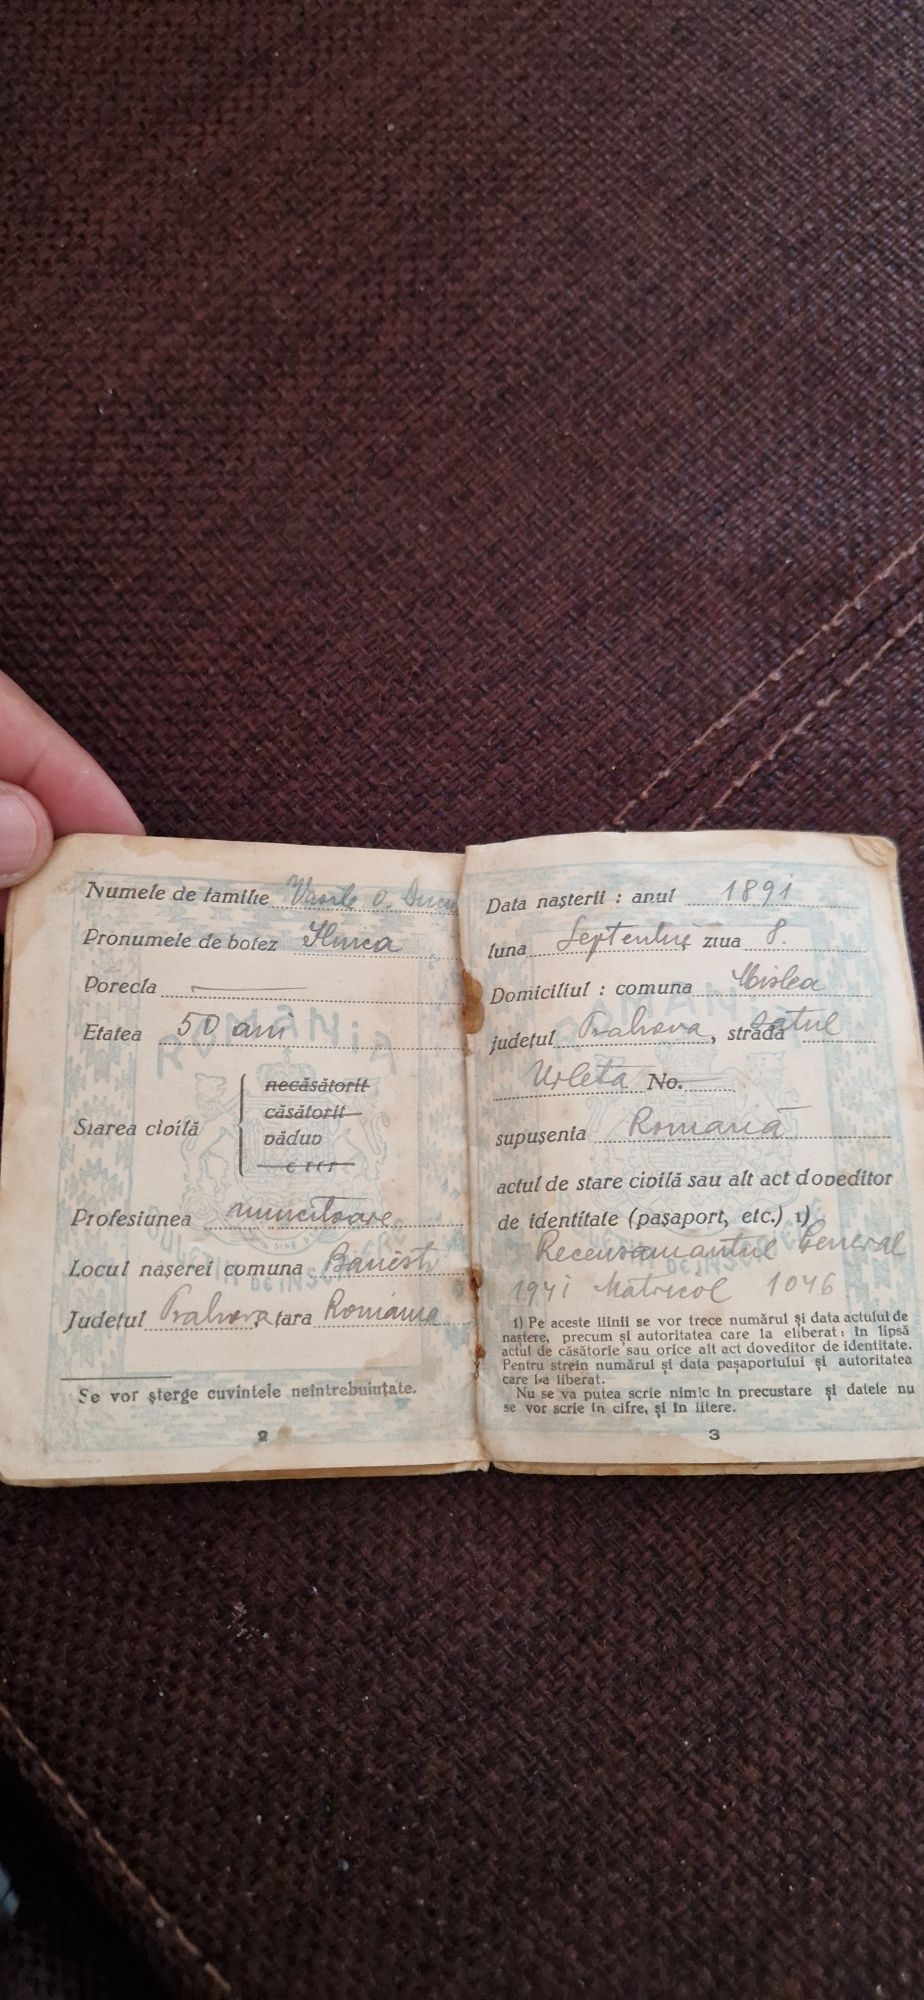 Numele de familie Vasile O. Ducu
Pronumele de botez Ilinca
Porecla
Etatea 50 ani
ROMÂNIA
Starea civilă
necăsătorit
căsătorit
văduv
Profesiunea muncitoare
Locul nașerei comuna Bănești
Județul Prahova, țara România
Se vor șterge cuvintele neîntrebuințate.
2
Data nașterii : anul 1891
luna Septembrie ziua 8.
Domiciliul : comuna Mislea
județul Prahova, strada satul
Urleta No.
supușenia Română
actul de stare civilă sau alt act doveditor
de identitate (pașaport, etc.) 1)
Recensamantul General
1941 Matricol 1046
1) Pe aceste liinii se vor trece numărul și data actului de
naștere, precum și autoritatea care la eliberat: în lipsă
actul de căsătorie sau orice alt act doveditor de identitate.
Pentru strein numărul și data pașaportului și autoritatea
care l-a liberat.
Nu se va putea scrie nimic în precustare și datele nu
se vor scrie în cifre, și în litere.
3